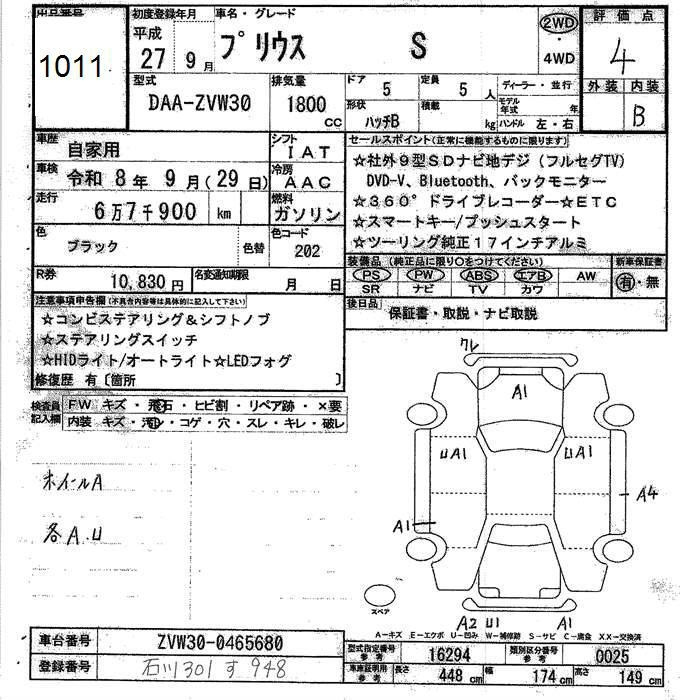 出品番号
1011
初度登録年月
平成
27 9月
車名・グレード
プリウス S
2WD
・
4WD
評価点
4
外装 内装
B
型式
DAA-ZVW30
排気量
1800
cc
ドア
5
定員
5 人
形状
ハッチB
積載
kg
ディーラー・並行
モデル年式 年
ハンドル 左・右
車歴
自家用
シフト
IAT
車検
令和 8年 9月(29日)
冷房
AAC
走行
6万7千900 km
燃料
ガソリン
色
ブラック
色替
色コード
202
R券
10,830円
名変通知期限
月 日
セールスポイント(正常に機能するものに限ります)
☆社外9型SDナビ地デジ(フルセグTV)
DVD-V、Bluetooth、バックモニター
☆360°ドライブレコーダー☆ETC
☆スマートキー/プッシュスタート
☆ツーリング純正17インチアルミ
装備品(純正品に限り〇をつけてください)
新車保証書
PS PW ABS エアB AW
SR ナビ TV カワ
有・無
後日品
保証書・取説・ナビ取説
注意事項申告欄(不具合内容等は具体的に記入して下さい)
☆コンビステアリング&シフトノブ
☆ステアリングスイッチ
☆HIDライト/オートライト☆LEDフォグ
修復歴 有〔箇所 〕
検査員記入欄
FW キズ・飛石・ヒビ割・リペア跡・×要
内装 キズ・汚れ・コゲ・穴・スレ・キレ・破レ
ホイールA
各A.U
クレ
A1
UA1
UA1
A4
A1
スペア
A2 U1
A1
A-キズ E-エクボ U-凹み W-補修跡 S-サビ C-腐食 XX-交換済
車台番号
ZVW30-0465680
登録番号
石川301す948
型式指定番号
参考
16294
類別区分番号
参考
0025
車庫証明用
参考
長さ
448 cm
幅
174 cm
高さ
149 cm